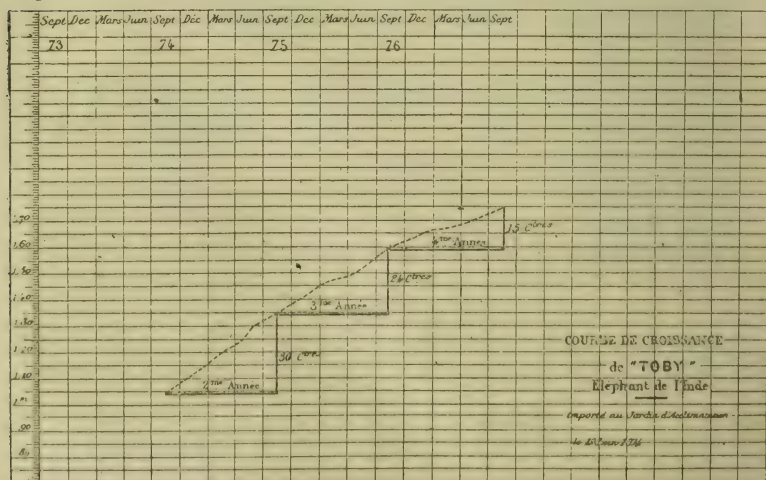 Sept Dec Mars Juin Sept Déc Mars Juin Sept Dec Mars Juin Sept Dec Mars Juin Sept
73 74 75 76
1.70
1.60
1.50
1.40
1.30
1.20
1.10
90
80
4me Année
15 Ctres
3me Année
24 Ctres
2me Année
30 Ctres
COURBE DE CROISSANCE
de "TOBY"
Eléphant de l'Inde
Importé au Jardin d'Acclimatation
le